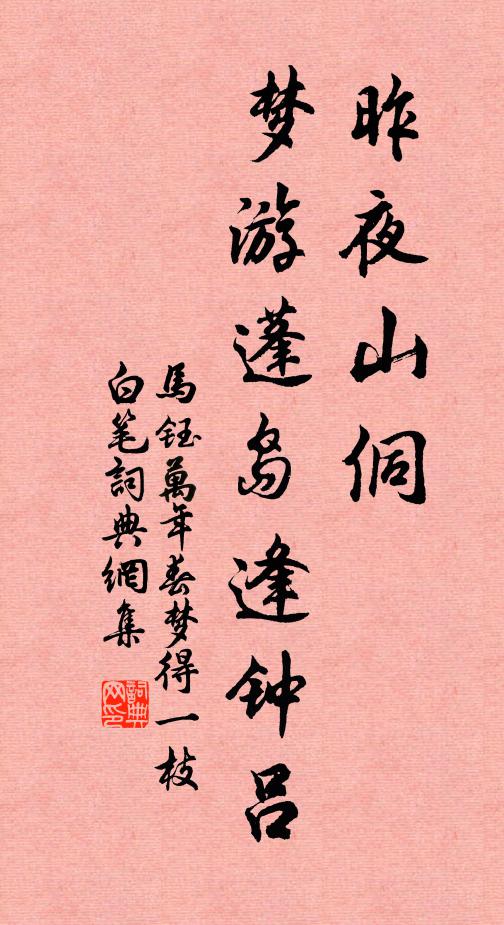 昨夜山侗
梦游蓬岛逢钟吕
馬鈺萬年春梦得一枝
白笔詞典網集
詞典网印